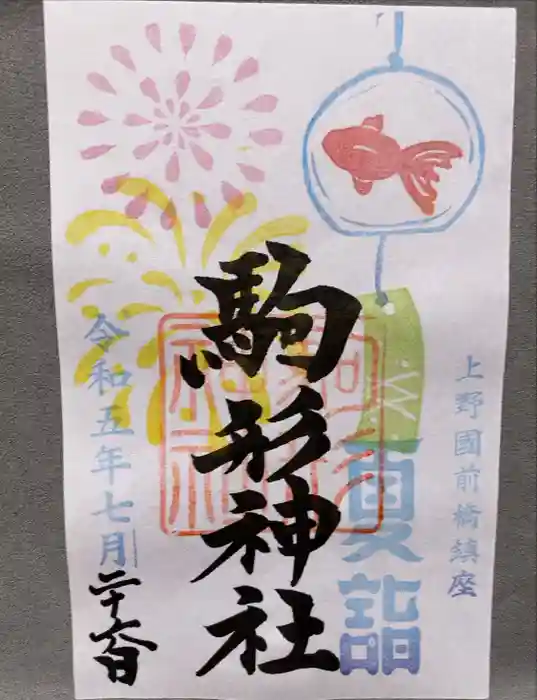 上野國前橋鎮座
夏詣
駒形神社
令和五年七月二十六日